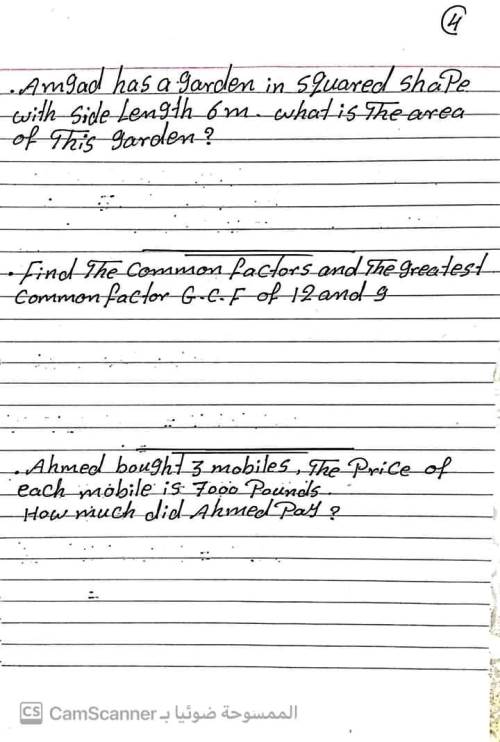 4
. Amgad has a garden in squared shape
with side Length 6m. what is The area
of This garden?
. Find The Common factors and The greatest
Common factor G.C.F of 12 and 9
. Ahmed bought 3 mobiles, The Price of
each mobile is 7000 Pounds.
How much did Ahmed Pay?
CS CamScanner الممسوحة ضوئيا بـ